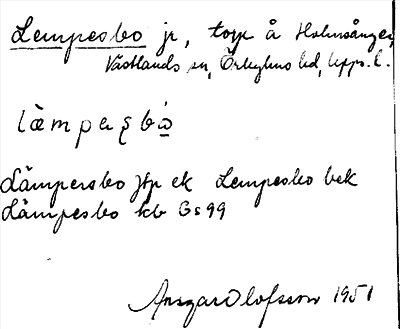 Lempesbo jr, torp å Holmsånger,
Västlands sn, Örbyhus hd, Upps. l.
Lämpersbo jfr ek Lempesbo bek
Lämpesbo kb Gs 99
Ansgar Olofsson 1951